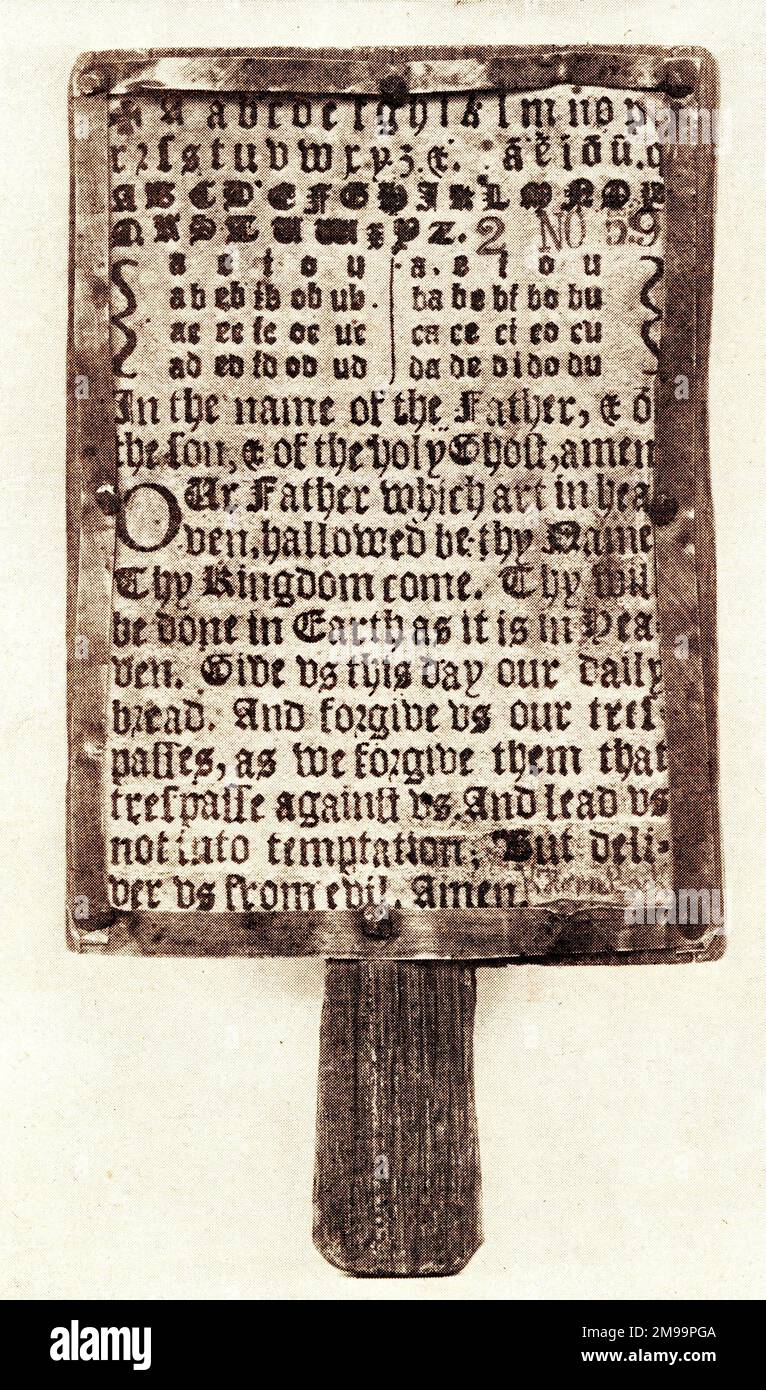 ✠ A a b c d e f g h i k l m n o p
r ꝛ ſ s t u v w x y z. &. ā ē ī ō ū.
A B C D E F G H I K L M N O P
Q R S T U W X Y Z. 2 NO 59
a e i o u a. e i o u
ab eb ib ob ub. ba be bi bo bu
ac ec ic oc uc ca ce ci co cu
ad ed id od ud da de di do du
In the name of the Father, & ō
the ſon, & of the holy Ghoſt, amen
OUr Father which art in hea
ven, hallowed be thy Name
Thy Kingdom come. Thy wil
be done in Earth as it is in Hea-
ven. Give vs this day our daily
bread. And forgive vs our treſ-
paſſes, as we forgive them that
treſpaſſe againſt vs. And lead vs
not into temptation: But deli-
ver vs from evil. Amen.
alamy
Image ID: 2M99PGA
www.alamy.com